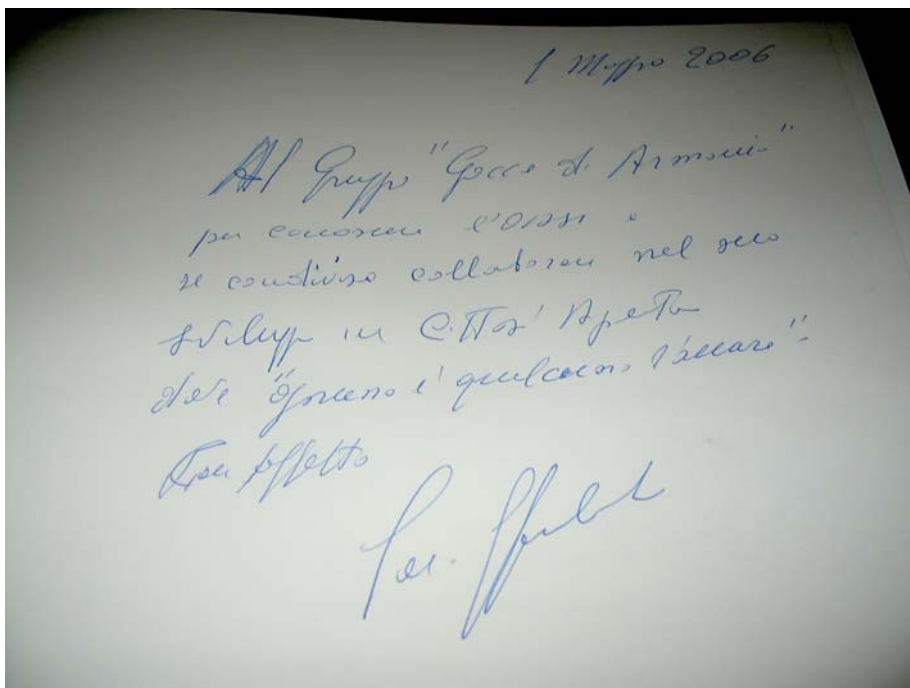 1 Maggio 2006
Al Gruppo "Gocce di Armonia"
per conoscere l'Oasi e
se condiviso collaborare nel suo
sviluppo in Città Aperta
dove "Ognuno è qualcuno l'amare".
Con Affetto